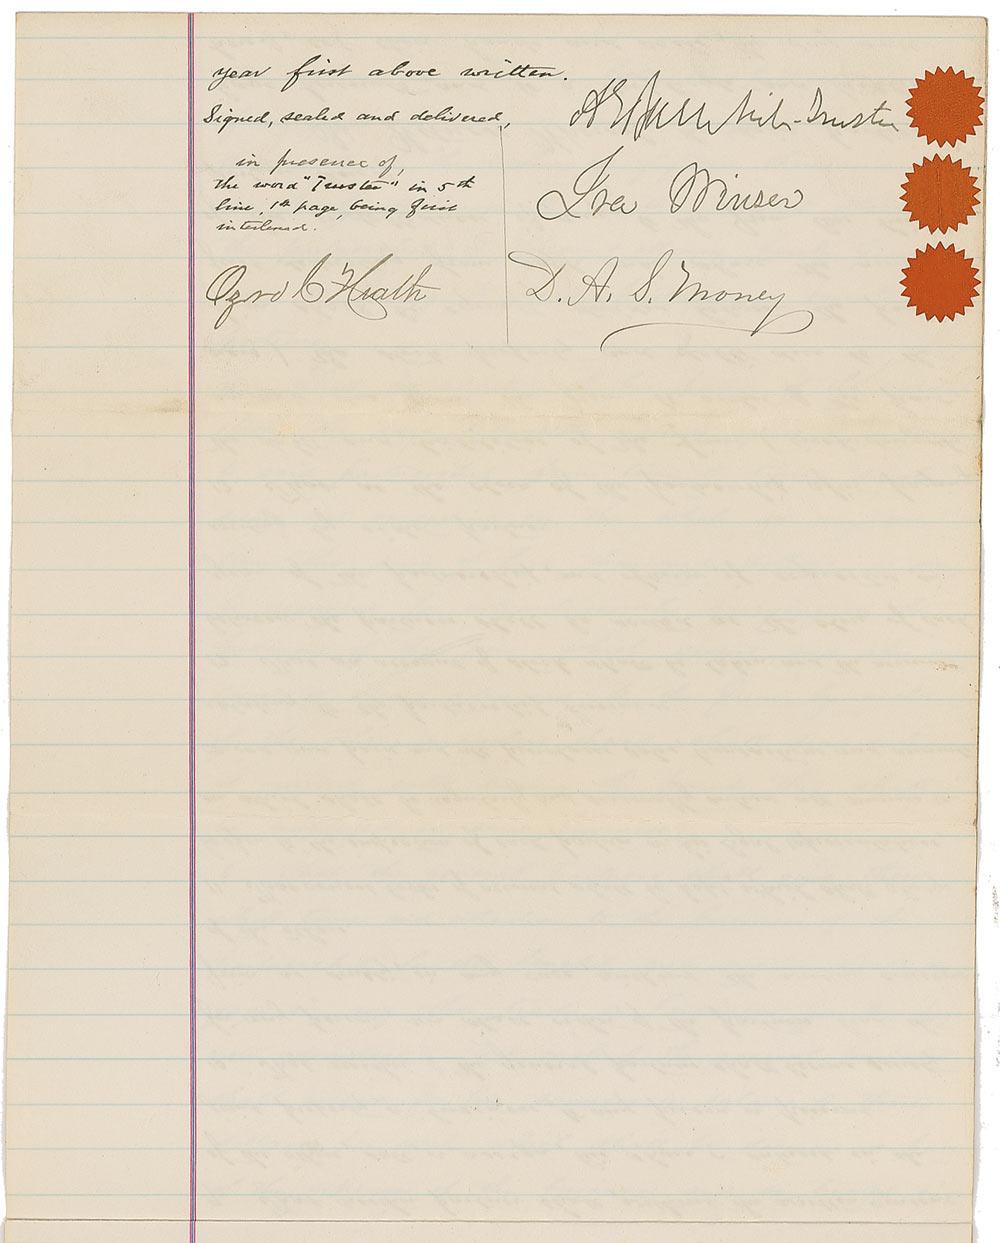 year first above written.
Signed, sealed and delivered,
in presence of,
the word "Trustee" in 5th
line, 1st page, being first
interlined.
Trustee
Ira Winsor
D. A. S. Money
Ozro C Heath